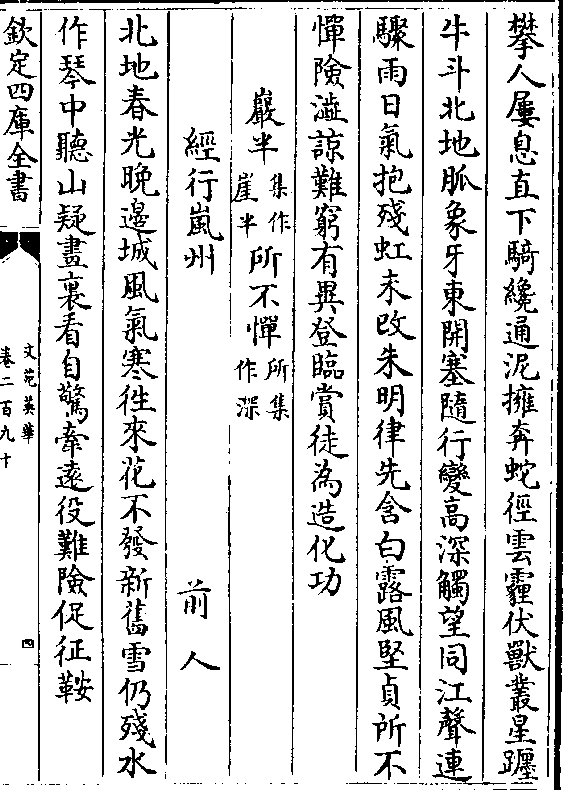 攀人屢息直下騎纔通泥擁奔蛇徑雲霾伏獸叢星躔
牛斗北地脈象牙東開塞隨行變高深觸望同江聲連
驟雨日氣抱殘虹未改朱明律先含白露風堅貞所不
憚險澁諒難窮有異登臨賞徒為造化功
巖半集作崖半所不憚所集作深
經行嵐州　前人
北地春光晚邊城風氣寒徃來花不發新舊雪仍殘水
作琴中聽山疑畫裏看自驚牽遠役難險促征鞍
欽定四庫全書
文苑英華
卷二百九十
四